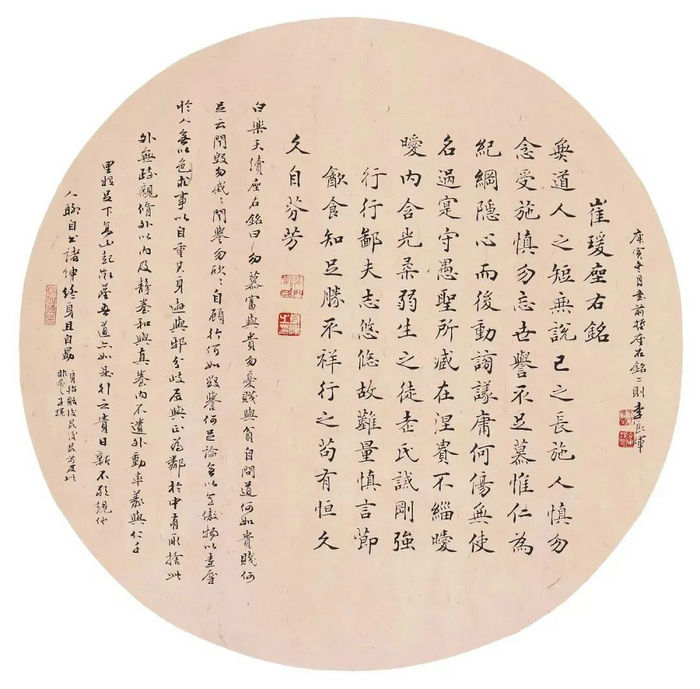 庚寅年月書前賢座右銘二則李
崔瑗座右銘
無道人之短無說己之長施人慎勿
念受施慎勿忘世譽不足慕惟仁為
紀綱隱心而後動謗議庸何傷無使
名過寔守愚聖所臧在涅貴不緇曖
曖內含光柔弱生之徒老氏誡剛強
行行鄙夫志悠悠故難量慎言節
飲食知足勝不祥行之苟有恒久
久自芬芳
白樂天續座右銘曰勿慕富與貴勿憂賤與貧自問道何如貴賤何
足云聞毀勿戚戚聞譽勿欣欣自顧行何如毀譽何足論無以意傲物以遠辱
於人無以色求事以自重其身遊與邪分歧居與正為鄰於中有取捨此
外無疏親脩外以及內靜養和與真養內不遺外動率義與仁千
里始足下高山起微塵吾道亦如此行之貴日新不敢規他
人聊自書諸紳終身且自勗